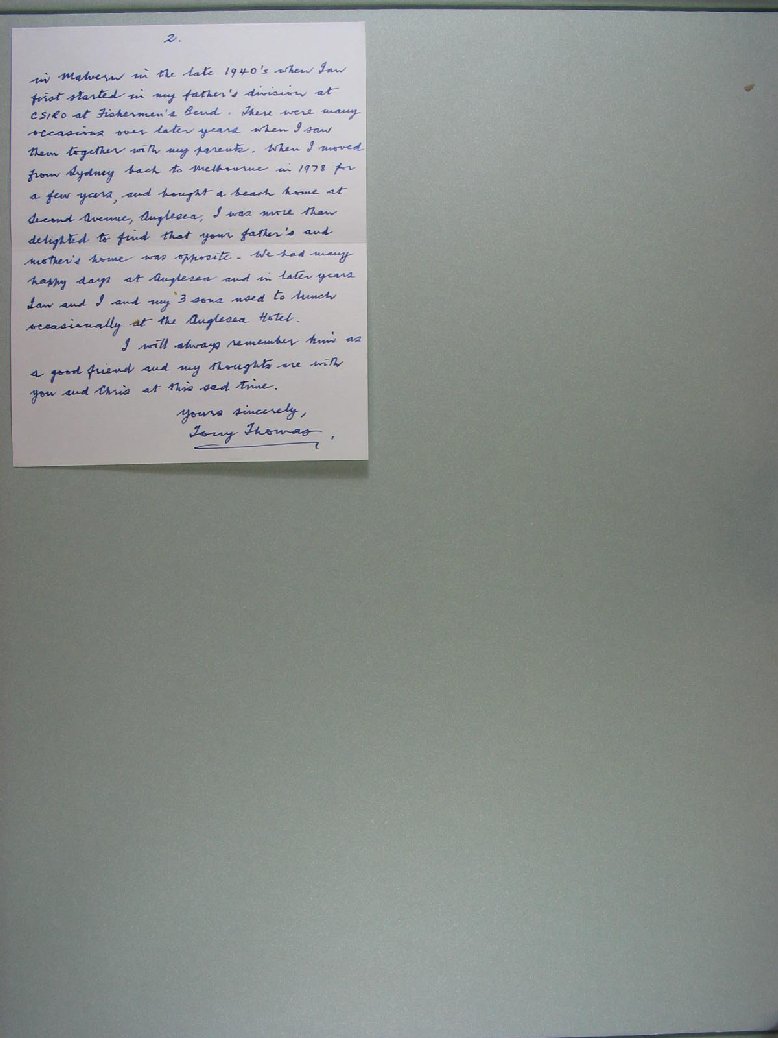 2.
in Malvern in the late 1940's when Ian
first started in my father's division at
CSIRO at Fishermen's Bend. There were many
occasions over later years when I saw
them together with my parents. When I moved
from Sydney back to Melbourne in 1978 for
a few years, and bought a beach home at
Second Avenue, Anglesea, I was more than
delighted to find that your father's and
mother's home was opposite. We had many
happy days at Anglesea and in later years
Ian and I and my 3 sons used to lunch
occasionally at the Anglesea Hotel.
I will always remember him as
a good friend and my thoughts are with
you and Chris at this sad time.
Yours sincerely,
Tony Thomas.